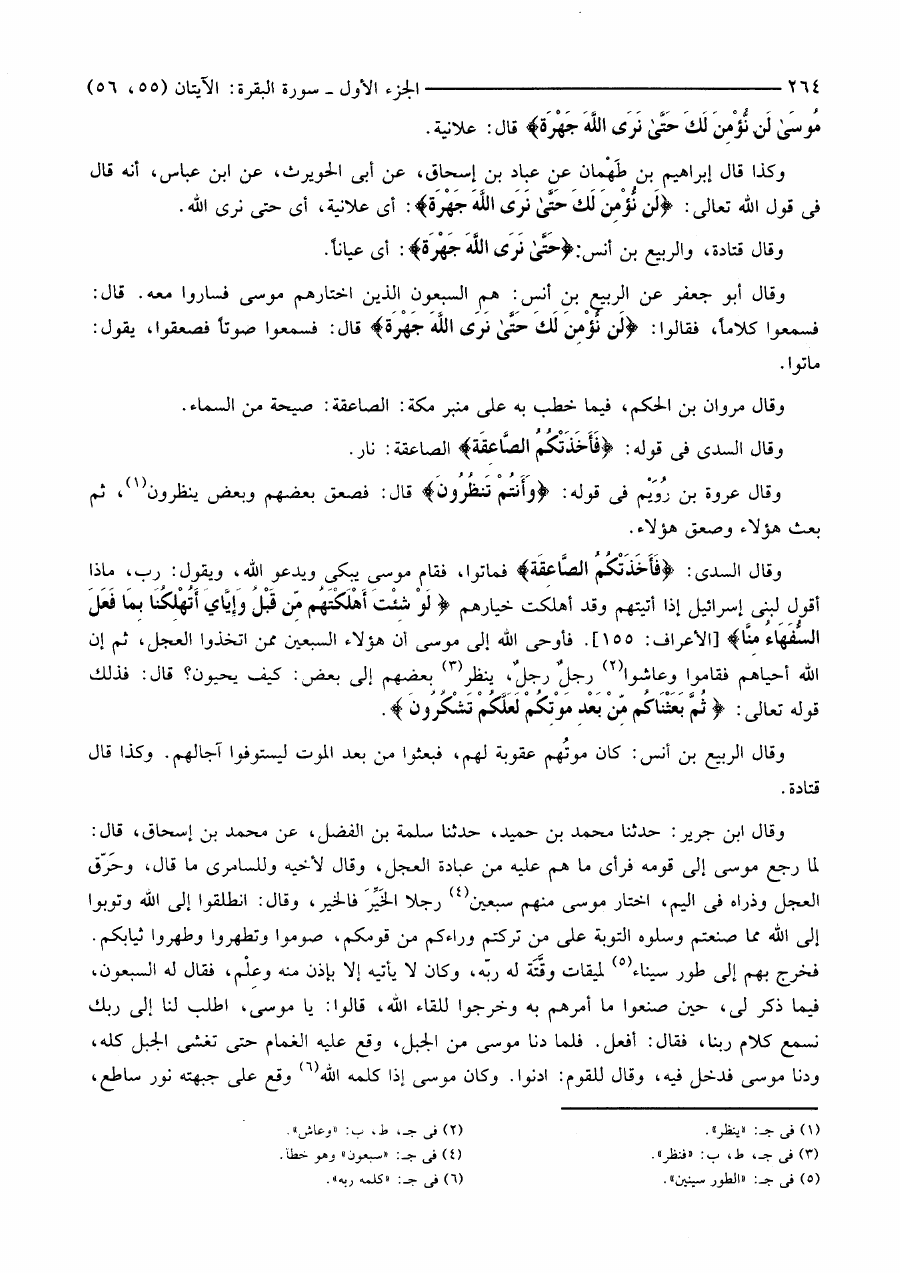 ٢٦٤ ــــــــــــــــــــ الجزء الأول ـ سورة البقرة: الآيتان (٥٥، ٥٦)
مُوسَىٰ لَن نُّؤْمِنَ لَكَ حَتَّىٰ نَرَى اللَّهَ جَهْرَةً﴾ قال: علانية.
وكذا قال إبراهيم بن طَهْمان عن عباد بن إسحاق، عن أبى الحويرث، عن ابن عباس، أنه قال
فى قول الله تعالى: ﴿لَن نُّؤْمِنَ لَكَ حَتَّىٰ نَرَى اللَّهَ جَهْرَةً﴾: أى علانية، أى حتى نرى الله.
وقال قتادة، والربيع بن أنس:﴿حَتَّىٰ نَرَى اللَّهَ جَهْرَةً﴾: أى عياناً.
وقال أبو جعفر عن الربيع بن أنس: هم السبعون الذين اختارهم موسى فساروا معه. قال:
فسمعوا كلاماً، فقالوا: ﴿لَن نُّؤْمِنَ لَكَ حَتَّىٰ نَرَى اللَّهَ جَهْرَةً﴾ قال: فسمعوا صوتاً فصعقوا، يقول:
ماتوا.
وقال مروان بن الحكم، فيما خطب به على منبر مكة: الصاعقة: صيحة من السماء.
وقال السدى فى قوله: ﴿فَأَخَذَتْكُمُ الصَّاعِقَةُ﴾ الصاعقة: نار.
وقال عروة بن رُوَيْم فى قوله: ﴿وَأَنتُمْ تَنظُرُونَ﴾ قال: فصعق بعضهم وبعض ينظرون(١)، ثم
بعث هؤلاء وصعق هؤلاء.
وقال السدى: ﴿فَأَخَذَتْكُمُ الصَّاعِقَةُ﴾ فماتوا، فقام موسى يبكى ويدعو الله، ويقول: رب، ماذا
أقول لبنى إسرائيل إذا أتيتهم وقد أهلكت خيارهم ﴿ لَوْ شِئْتَ أَهْلَكْتَهُم مِّن قَبْلُ وَإِيَّايَ أَتُهْلِكُنَا بِمَا فَعَلَ
السُّفَهَاءُ مِنَّا﴾ [الأعراف: ١٥٥]. فأوحى الله إلى موسى أن هؤلاء السبعين ممن اتخذوا العجل، ثم إن
الله أحياهم فقاموا وعاشوا(٢) رجلٌ رجلٌ، ينظر(٣) بعضهم إلى بعض: كيف يحيون؟ قال: فذلك
قوله تعالى: ﴿ ثُمَّ بَعَثْنَاكُم مِّنْ بَعْدِ مَوْتِكُمْ لَعَلَّكُمْ تَشْكُرُونَ ﴾.
وقال الربيع بن أنس: كان موتُهم عقوبة لهم، فبعثوا من بعد الموت ليستوفوا آجالهم. وكذا قال
قتادة.
وقال ابن جرير: حدثنا محمد بن حميد، حدثنا سلمة بن الفضل، عن محمد بن إسحاق، قال:
لما رجع موسى إلى قومه فرأى ما هم عليه من عبادة العجل، وقال لأخيه وللسامرى ما قال، وحَرّق
العجل وذراه فى اليم، اختار موسى منهم سبعين(٤) رجلا الخَيِّرَ فالخير، وقال: انطلقوا إلى الله وتوبوا
إلى الله مما صنعتم وسلوه التوبة على من تركتم وراءكم من قومكم، صوموا وتطهروا وطهروا ثيابكم.
فخرج بهم إلى طور سيناء(٥) لميقات وقَّتَه له ربّه، وكان لا يأتيه إلا بإذن منه وعلْم، فقال له السبعون،
فيما ذكر لى، حين صنعوا ما أمرهم به وخرجوا للقاء الله، قالوا: يا موسى، اطلب لنا إلى ربك
نسمع كلام ربنا، فقال: أفعل. فلما دنا موسى من الجبل، وقع عليه الغمام حتى تغشى الجبل كله،
ودنا موسى فدخل فيه، وقال للقوم: ادنوا. وكان موسى إذا كلمه الله(٦) وقع على جبهته نور ساطع،
(١) فى جـ: «ينظر».
(٢) فى جـ، ط، ب: «وعاش».
(٣) فى جـ، ط، ب: «فنظر».
(٤) فى جـ: «سبعون» وهو خطأ.
(٥) فى جـ: «الطور سينين».
(٦) فى جـ: «كلمه ربه».